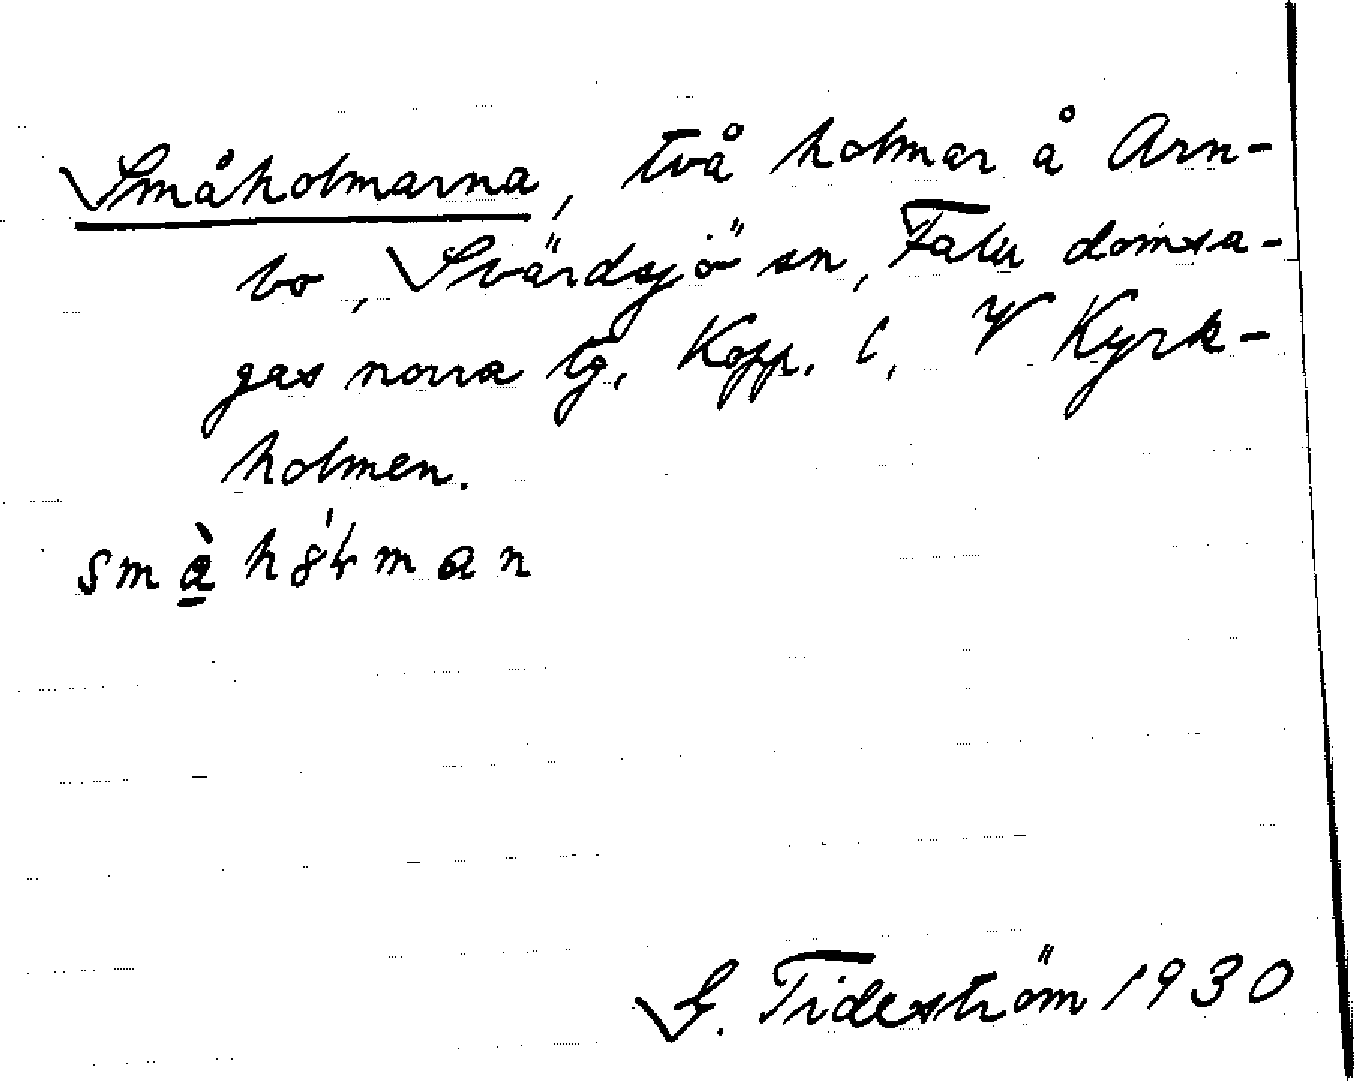 Småholmarna, två holmar å Arn-
bo, Svärdsjö sn, Falu domsa-
gas norra tg, Kopp. l, V Kyrk-
holmen.
G. Tideström 1930